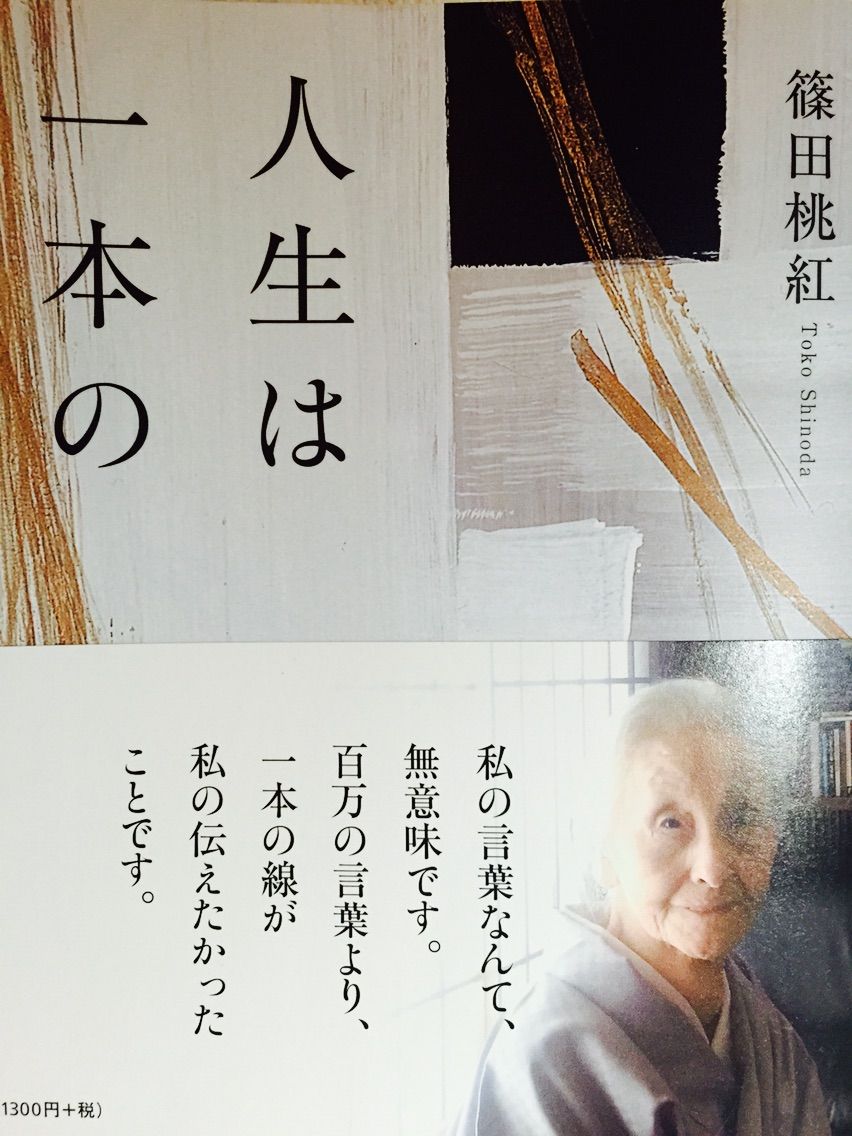 篠田桃紅
Toko Shinoda
人生は
一本の
私の言葉なんて、
無意味です。
百万の言葉より、
一本の線が
私の伝えたかった
ことです。
1300円+税）